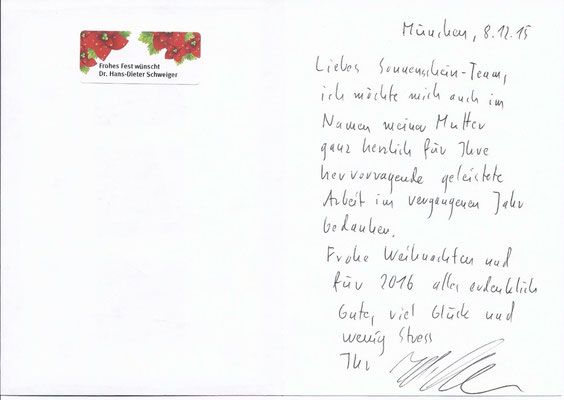 Frohes Fest wünscht
Dr. Hans-Dieter Schweiger
München, 8.12.15
Liebes Sonnenschein-Team,
ich möchte mich auch im
Namen meiner Mutter
ganz herzlich für Ihre
hervorragende geleistete
Arbeit im vergangenen Jahr
bedanken.
Frohe Weihnachten und
für 2016 alles erdenklich
Gute, viel Glück und
wenig Stress
Ihr